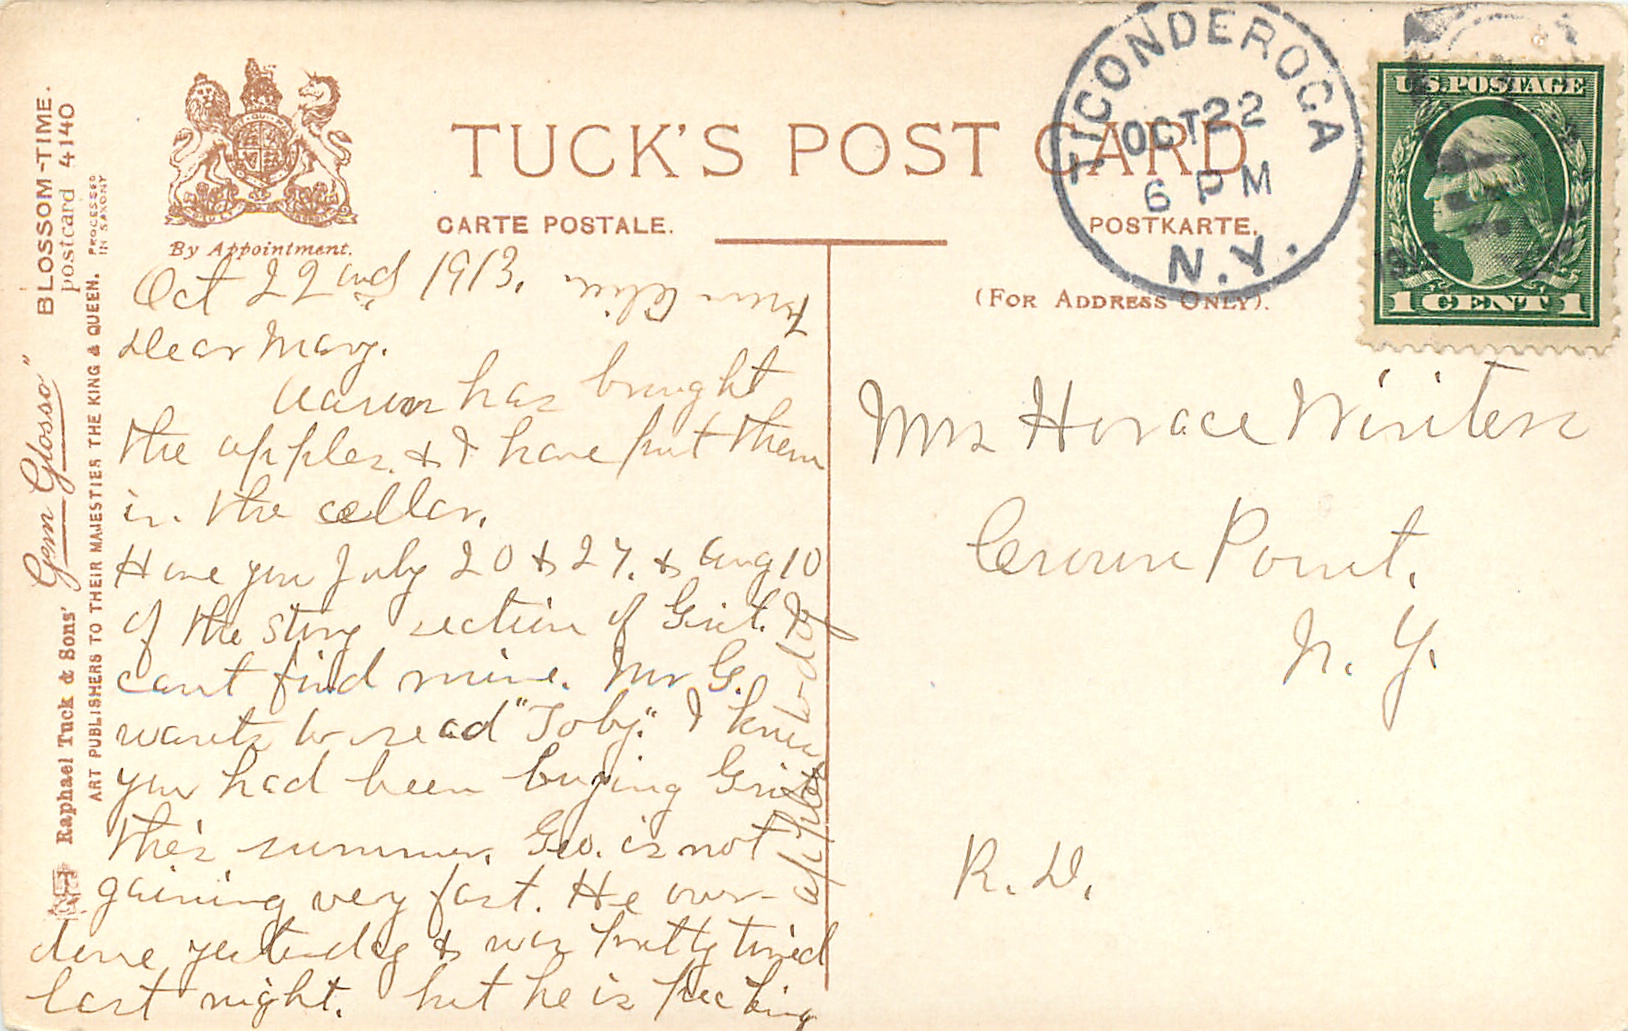 BLOSSOM-TIME.
postcard 4140
PROCESSED
IN SAXONY
"Gem Glosso"
Raphael Tuck & Sons'
ART PUBLISHERS TO THEIR MAJESTIES THE KING & QUEEN.
By Appointment.
TUCK'S POST CARD
CARTE POSTALE.
POSTKARTE.
(FOR ADDRESS ONLY).
TICONDEROGA
OCT 22
6 PM
N.Y.
U.S. POSTAGE
1 CENT 1
Oct 22nd 1913.
Dear Mary.
Aaron has brought
the apples. & I have put them
in the cellar.
Have you July 20 & 27. & Aug 10
of the story section of Grit. I
cant find mine. Mr G.
wants to read "Toby". I knew
you had been buying Grit
this summer. Geo. is not
gaining very fast. He over-
done yesterday & was pretty tired
last night. but he is picking
apples to-day
From
Mrs Horace Winters
Crown Point.
N. Y.
R. D.